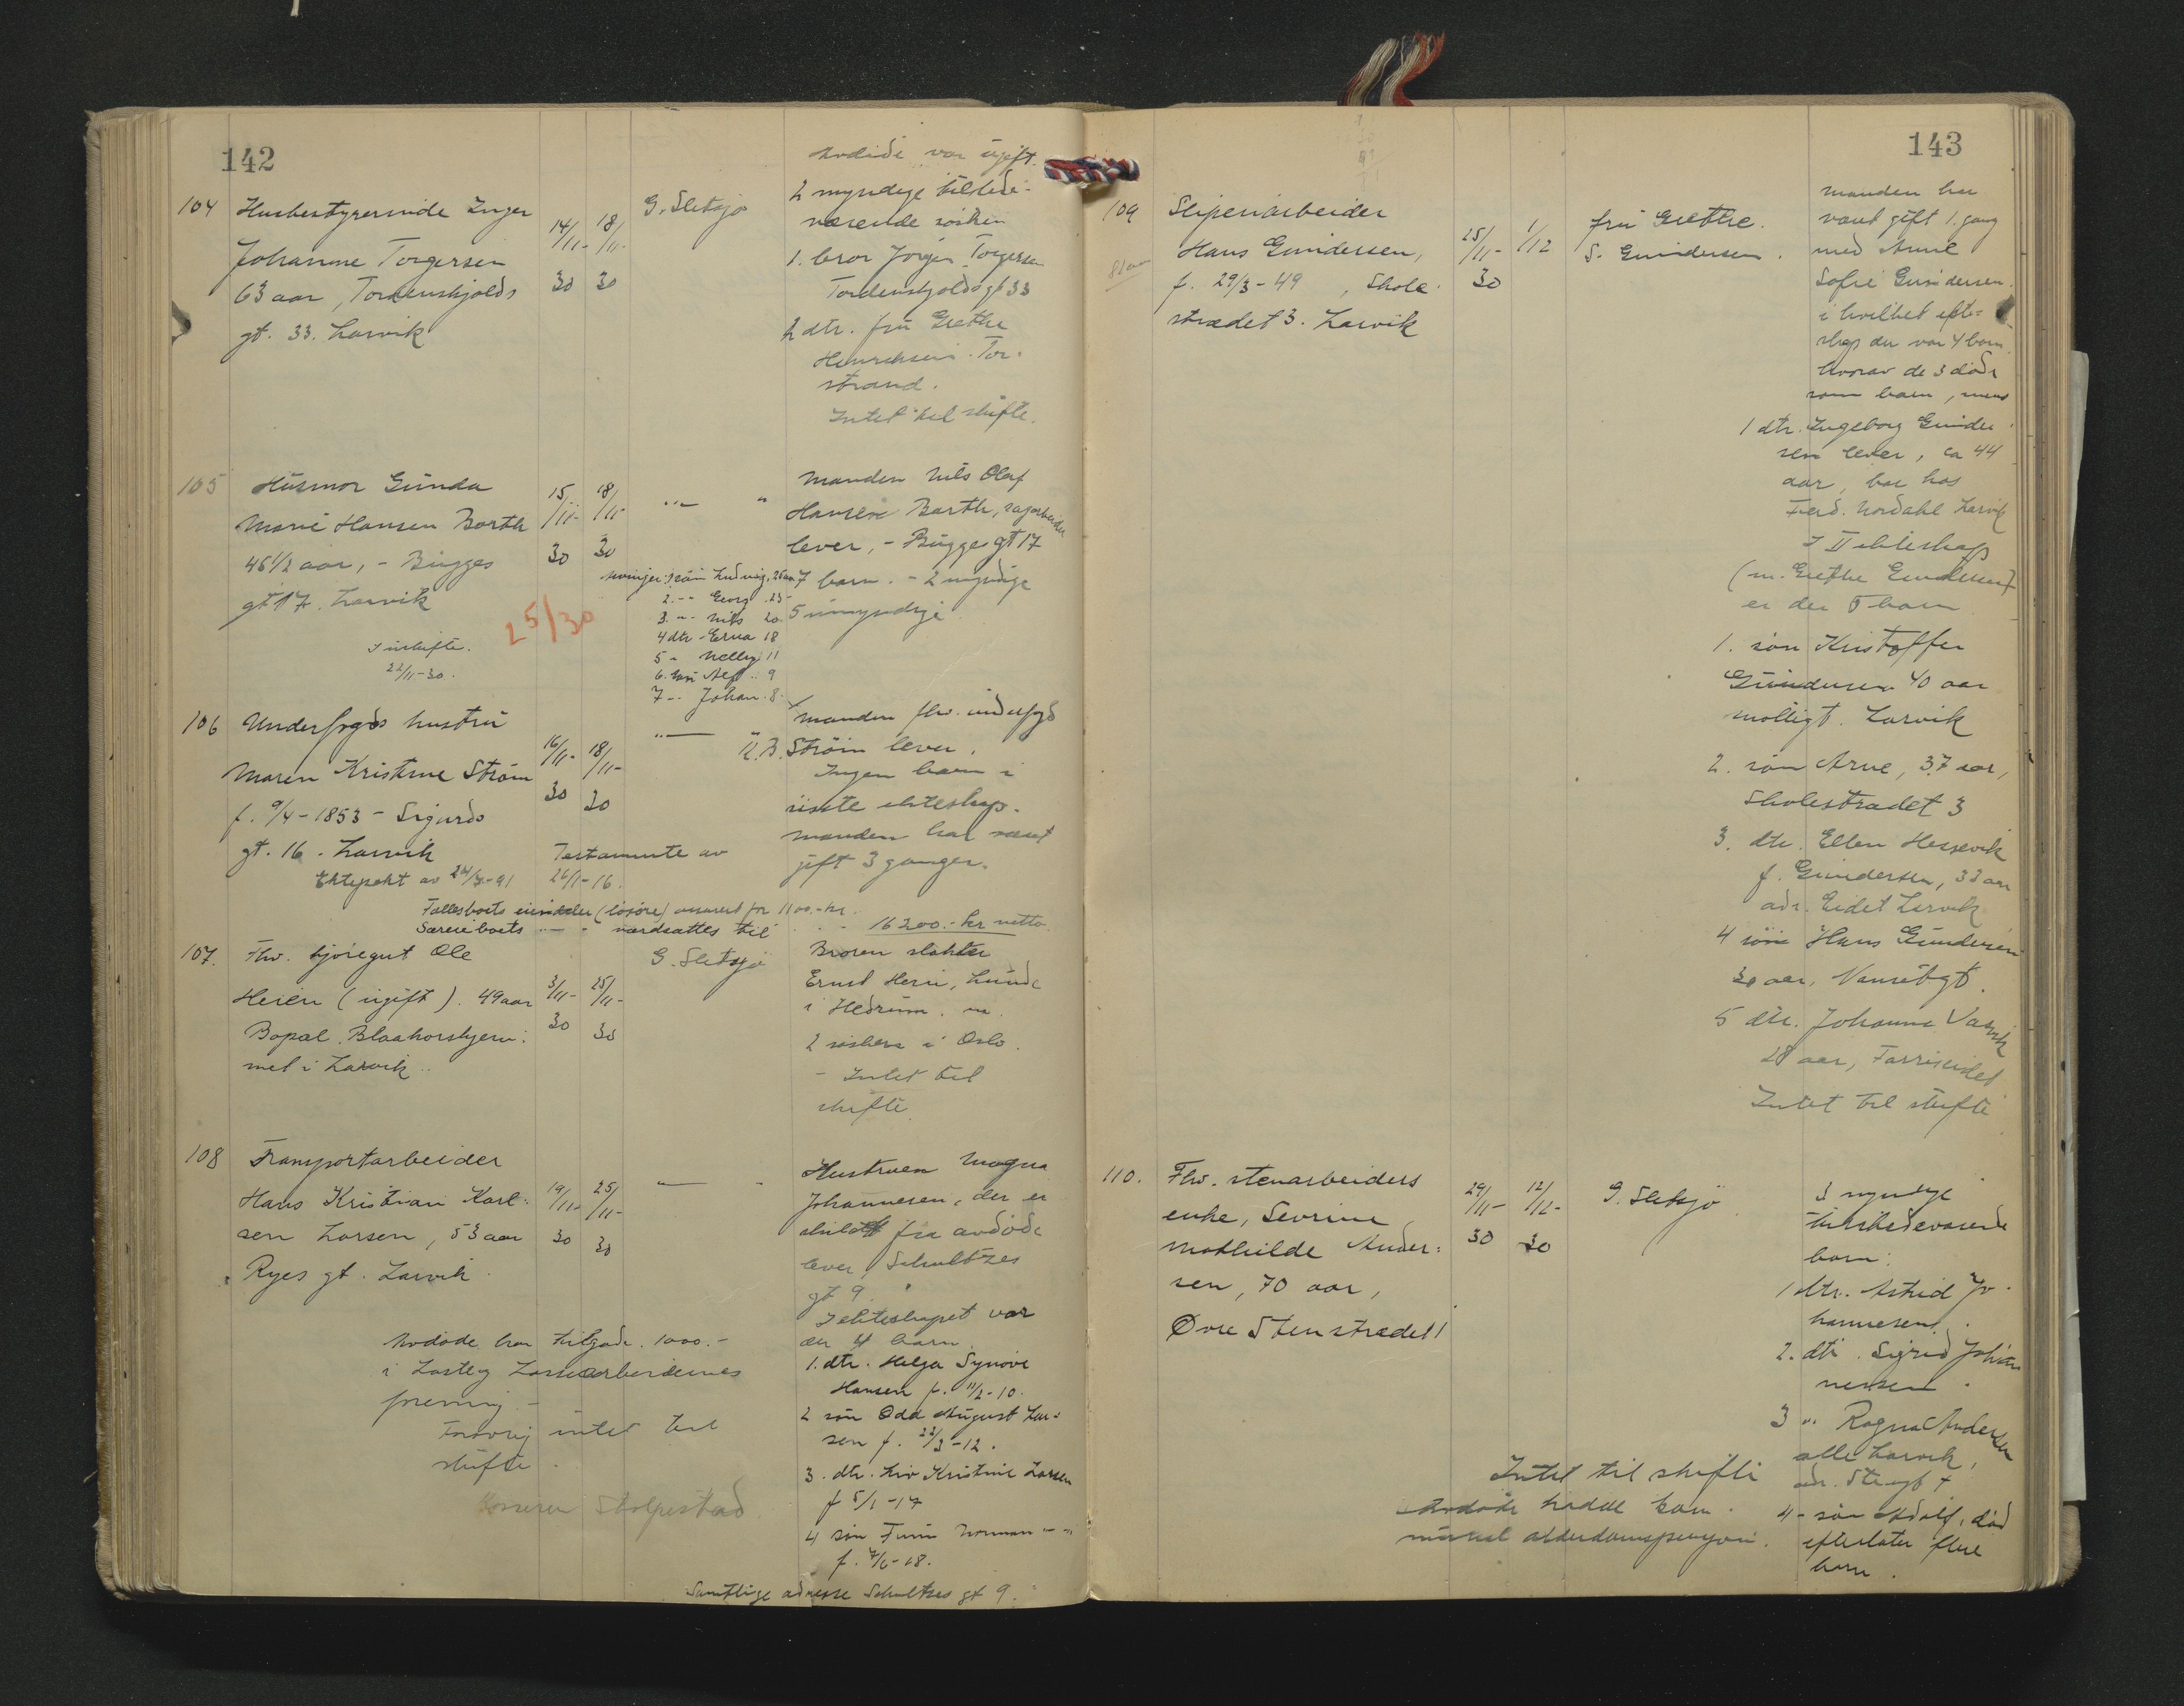 142
Avdöde var ugift.
104 Husbestyrerinde Inger
Johanne Torgersen
63 aar, Tordenskjolds
gt. 33. Larvik
14/11- 30
18/11- 30
G. Sletsjö
2 myndige tilstede-
værende sösken
1. bror Jörgen Torgersen
Tordenskjoldsgt 33
2 dtr. fru Grethe
Henrichsen. Tor-
strand.
Intet til skifte.
105 Husmor Gunda
Marie Hansen Barth
45 1/2 aar, - Bugges
gt 17. Larvik
15/11- 30
18/11- 30
Manden Nils Olaf
Hansen Barth, sagarbeider
lever, - Bugges gt 17
7 barn. - 2 myndige
5 umyndige
1. sön Ludvig, 26 aar
2. -"- Georg 23
3. -"- Nils 20
4 dtr - Erna 18
5 " Nelly 11
6. sön Alf .. 9
7 -.. Johan . 8.
25/30
Uskifte.
22/11-30.
106 Underfogds hustru
Maren Kristine Ström
f. 9/4-1853 - Sigurds
gt. 16 - Larvik
16/11- 30
18/11- 30
Manden fhv. underfogd
N.B. Ström lever.
Ingen barn i
sisste ekteskap.
Manden har vært
gift 3 ganger.
Ektepakt av 24/7-91
Testamente av
26/1-16.
Fællesboets eiendeler (lösöre) ansatt for 1100.- kr.
Særeieboets -"- værdsættes til 16200.- kr netto
107. Fhv. hjöregut Ole
Heien (ugift). 49 aar
Bopæl. Blaakorshjem-
met i Larvik.
3/11- 30
25/11- 30
G. Sletsjö
Broren slakter
Ernst Heien, Lunde
i Hedrum.
2 söskere i Oslo.
- Intet til
skifte.
108 Transportarbeider
Hans Kristian Karl-
sen Larsen, 53 aar
Ryes gt. Larvik.
19/11- 30
25/11- 30
Hustruen Magna
Johannesen, der er
skildt fra avdöde
lever, Schultzes
gt 9.
I ekteskapet var
der 4 barn.
1. dtr. Helga Synöve
Hansen f. 11/2-10.
2 sön Odd August Lar-
sen f. 22/3-12.
3. dtr. Liv Kristine Larsen
f 5/1-17
4 sön Finn Norman -"-
f. 7/6-18.
Samtlige adresse Schultzes gt 9.
Avdöde har tilgode 1000.-
i Laste og Lossearbeidernes
forening -
Forövrig intet til
skifte.
Stolpestad
143
109 Sliperiarbeider
Hans Gundersen,
f. 29/3-49, Skole-
strædet 3. Larvik
81 aar
25/11- 30
1/12
fru Grethe
S. Gundersen.
Manden har
vært gift 1. gang
med Anne
Sofie Gundersen.
i hvilket ekte-
skap der var 4 barn
hvorav de 3 döde
som barn, mens
1 dtr. Ingeborg Gunder
sen lever, ca 44
aar, bor hos
Ferd. Nordahl Larvik
I II ekteskap
(m. Grethe Gundersen)
er der 5 barn
1. sön Kristoffer
Gundersen 40 aar
Larvik
2. sön Arne, 37 aar,
Skolestrædet 3
3. dtr. Ellen Hessevik
f. Gundersen, 33 aar
adr. Eidet Larvik
4 sön Hans Gundersen
30 aar,
5 dtr. Johanna
28 aar, Farriseidet
Intet til skifte
110. Fhv. stenarbeiders
enke, Sevrine
Mathilde Ander-
sen, 70 aar,
Övre Stenstrædet 1
29/11- 30
12/12- 30
G. Sletsjö
3 myndige
tilstedeværende
barn:
1 dtr. Astrid Jo-
hannesen.
2. dtr. Sigrid Johan
nessen.
3 " Ragna Andersen
alle Larvik,
4 - sön Adolf, död
efterlater flere
barn.
Intet til skifte
Avdöde hadde kom-
munal alderdomspensjon.